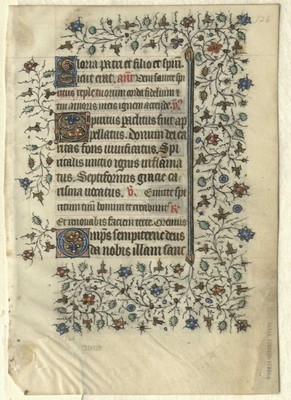 Gloria patri et filio et spiri
sicut erat. añ Veni sancte spi
ritus reple tuorum corda fidelium et
tui amoris in eis ignem accende. v̄
Spiritus paclitus fuit ap
pellatus. Donum dei ca
ritas fons vivificatus. Spi
ritalis unctio ignis inflama
tus. Septiformis gracie ca
risma vocatus. v̄. Emitte spi
ritum tuum
Et renovabis faciem terre. Oremus
Omps sempiterne deus
da nobis illam sanc